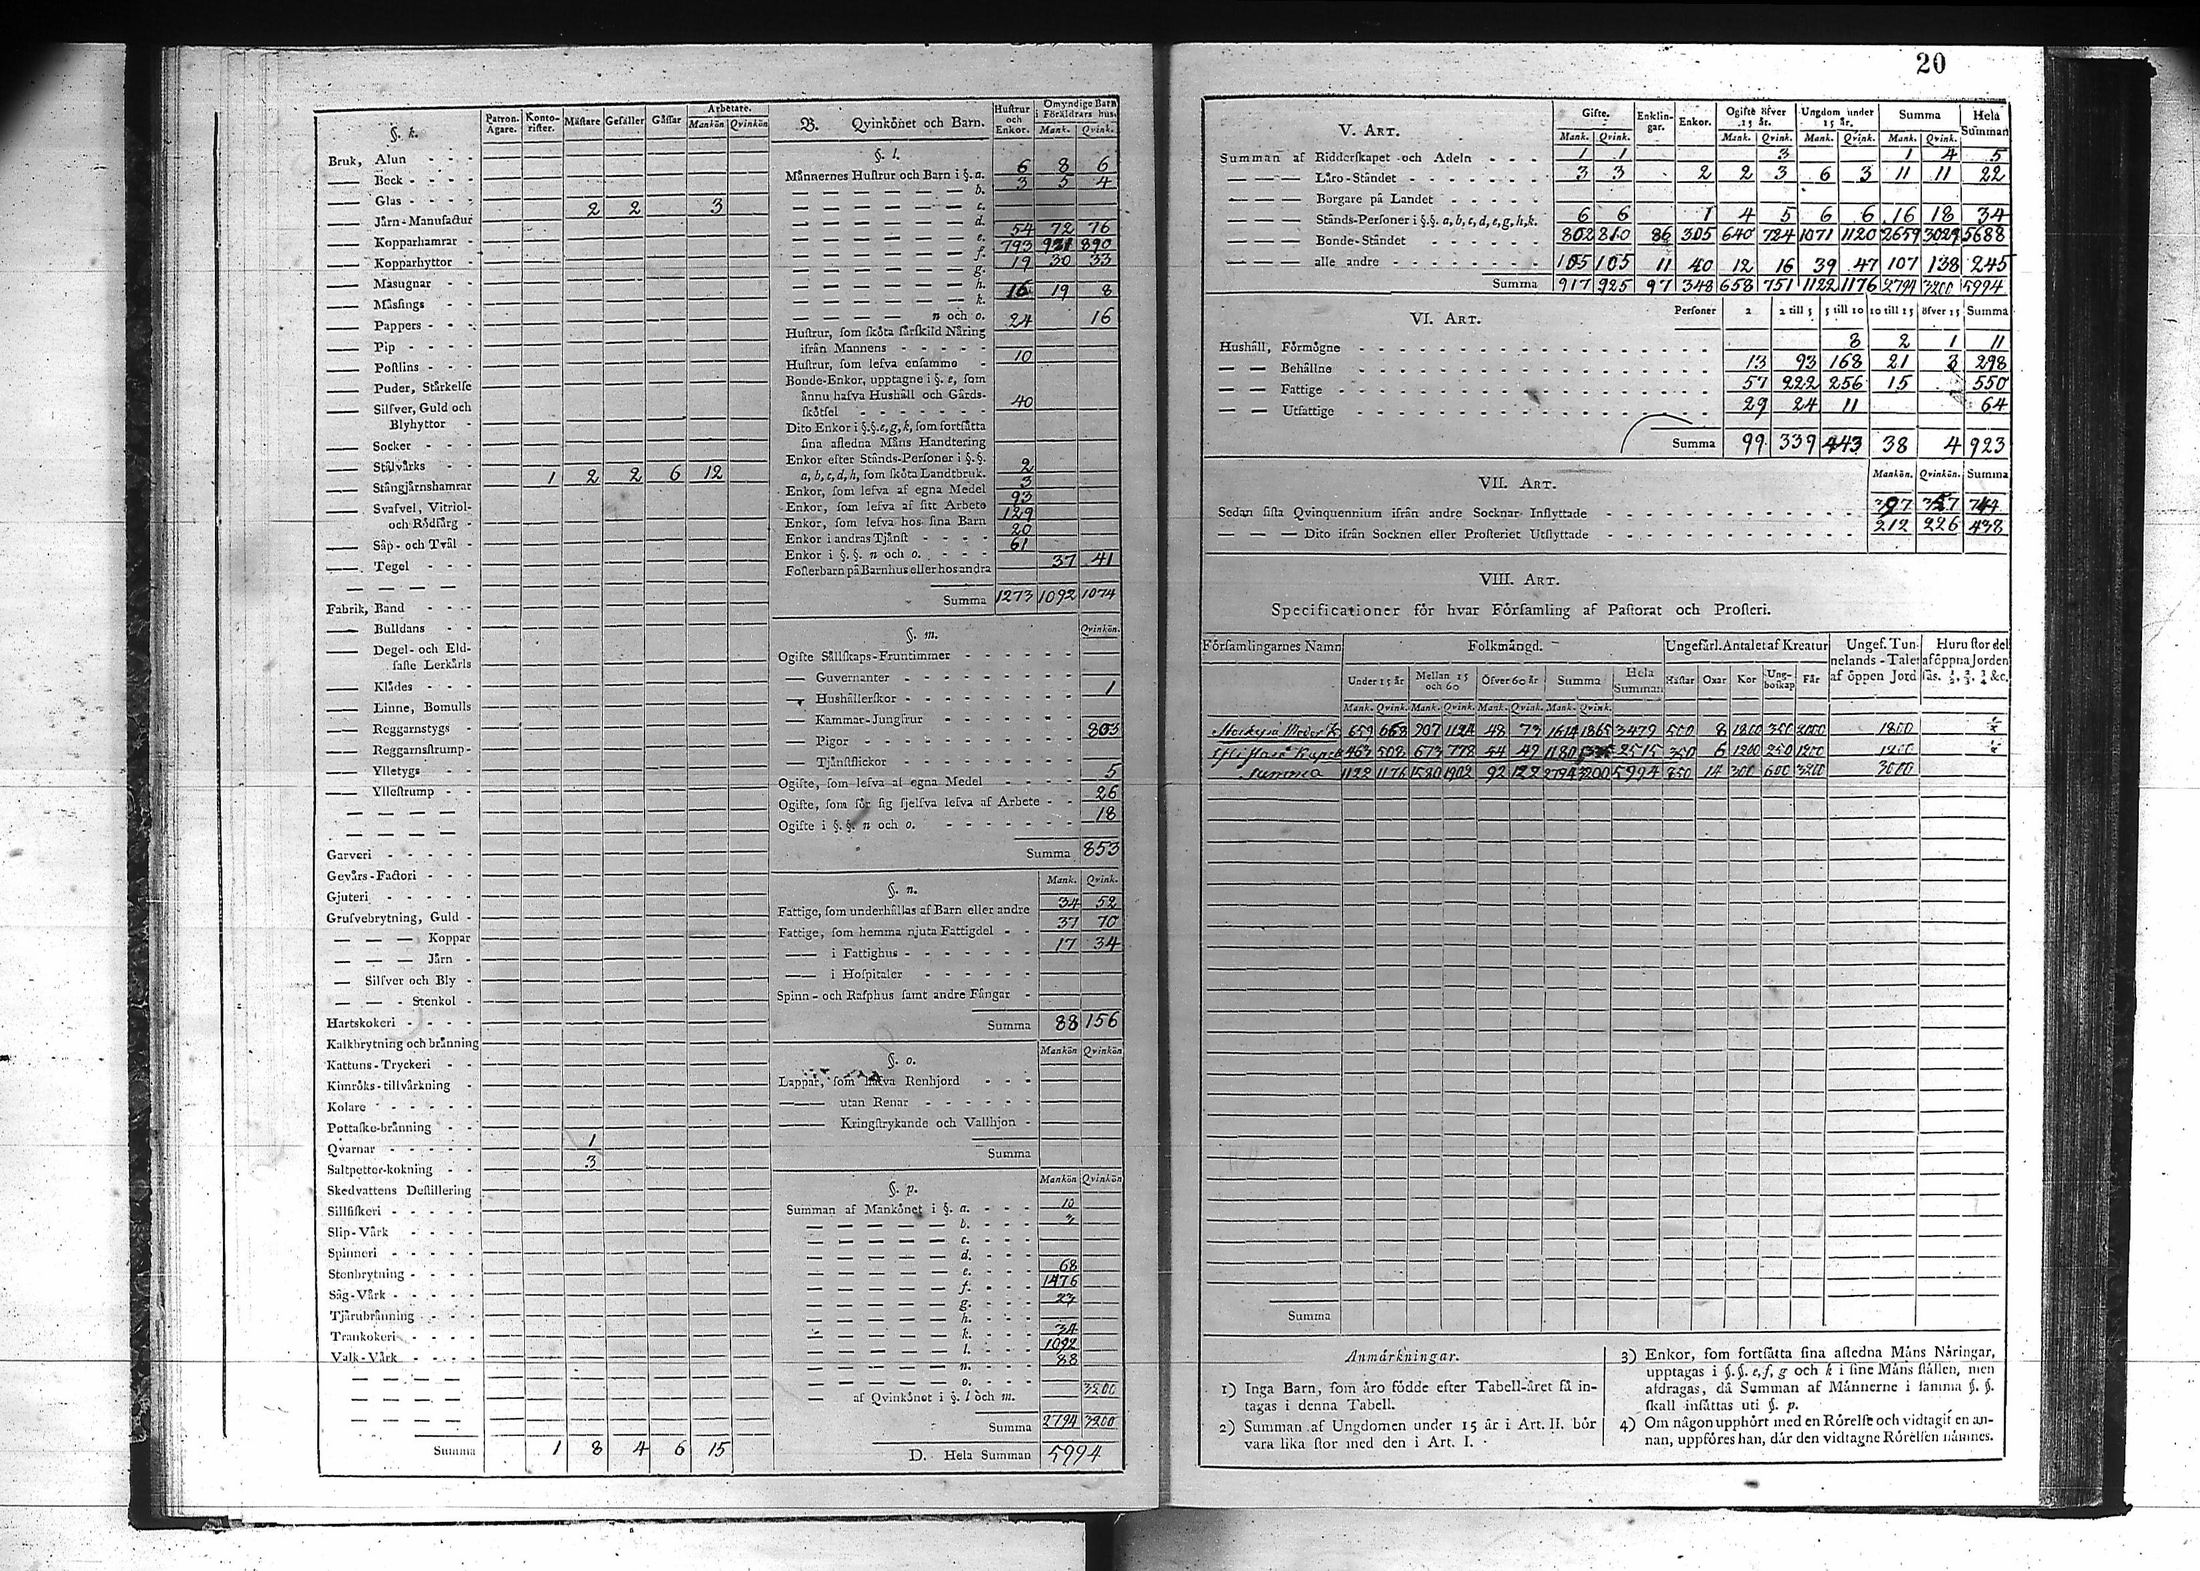 20
§. k.
Patron. Ägare.
Kontorister.
Mästare
Gesäller
Gåssar
Arbetare.
Mankön Qvinkön
Bruk, Alun
Beck
Glas
Järn-Manufactur 2 2 3
Kopparhamrar
Kopparhyttor
Masugnar
Mässings
Pappers
Pip
Postlins
Puder, Stärkelse
Silfver, Guld och
Blyhyttor
Socker
Stålvärks
Stångjärnshamrar 1 2 2 6 12
Svafvel, Vitriol-
och Rödfärg
Såp- och Tvål
Tegel
Fabrik, Band
Bulldans
Degel- och Eld-
faste Lerkärls
Klädes
Linne, Bomulls
Reggarnstygs
Reggarnsstrump
Ylletygs
Yllestrump
Garveri
Gevärs-Factori
Gjuteri
Grufvebrytning, Guld
Koppar
Järn
Silfver och Bly
Stenkol
Hartskokeri
Kalkbrytning och bränning
Kattuns-Tryckeri
Kimröks-tillvärkning
Kolare
Pottaske-bränning
Qvarnar 1
Saltpetter-kokning 3
Skedvattens Destillering
Sillfiskeri
Slip-Värk
Spinneri
Stenbrytning
Såg-Värk
Tjärubränning
Trankokeri
Valk-Värk
Summa 1 8 4 6 15
B. Qvinkönet och Barn.
Hustrur och Enkor.
Omyndige Barn i Föräldrars hus.
Mank. Qvink.
§. l.
Männernes Hustrur och Barn i §. a. 6 8 6
b. 3 5 4
c.
d.
e. 54 72 76
f. 793 921 890
g. 19 30 33
h.
k. 16 19 8
n och o. 24 16
Hustrur, som sköta särskild Näring
ifrån Mannens
Hustrur, som lefva ensamme 10
Bonde-Enkor, upptagne i §. e, som
ännu hafva Hushåll och Gårds-
skötsel 40
Dito Enkor i §.§. e, g, k, som fortsätta
sina afledna Mäns Handtering
Enkor efter Stånds-Personer i §.§.
a, b, c, d, h, som sköta Landtbruk. 2
Enkor, som lefva af egna Medel 3
Enkor, som lefva af sitt Arbete 93
Enkor, som lefva hos sina Barn 129
Enkor i andras Tjänst 20
Enkor i §.§. n och o. 61
Fosterbarn på Barnhus eller hos andra 37 41
Summa 1273 1092 1074
§. m.
Qvinkön.
Ogifte Sällskaps-Fruntimmer
Guvernanter
Hushållerskor 1
Kammar-Jungfrur
Pigor 803
Tjänstflickor
Ogifte, som lefva af egna Medel 5
Ogifte, som för sig sjelfva lefva af Arbete 26
Ogifte i §.§. n och o. 18
Summa 853
§. n.
Mank. Qvink.
Fattige, som underhållas af Barn eller andre 34 52
Fattige, som hemma njuta Fattigdel 37 70
i Fattighus 17 34
i Hospitaler
Spinn- och Rasphus samt andre Fångar
Summa 88 156
§. o.
Mankön Qvinkön
Lappar, som hafva Renhjord
utan Renar
Kringstrykande och Vallhjon
Summa
§. p.
Mankön Qvinkön
Summan af Mankönet i §. a. 10
b. 3
c.
d.
e. 68
f. 1476
g. 23
h.
k. 34
l. 1092
n. 88
o.
af Qvinkönet i §. l och m. 3200
Summa 2794 3200
D. Hela Summan 5994
V. Art.
Gifte.
Enklingar.
Enkor.
Ogifte öfver 15 år.
Ungdom under 15 år.
Summa
Hela Summan
Mank. Qvink. Mank. Qvink. Mank. Qvink. Mank. Qvink.
Summan af Ridderskapet och Adeln 1 1 3 1 4 5
Läro-Ståndet 3 3 2 2 3 6 3 11 11 22
Borgare på Landet
Stånds-Personer i §.§. a, b, c, d, e, g, h, k. 6 6 1 4 5 6 6 16 18 34
Bonde-Ståndet 802 810 86 305 640 724 1071 1120 2659 3029 5688
alle andre 105 105 11 40 12 16 39 47 107 138 245
Summa 917 925 97 348 658 751 1122 1176 2794 3200 5994
VI. Art.
Personer 2 2 till 5 5 till 10 10 till 15 öfver 15 Summa
Hushåll, Förmögne 8 2 1 11
Behållne 13 93 168 21 3 298
Fattige 57 222 256 15 550
Utfattige 29 24 11 64
Summa 99 339 443 38 4 923
VII. Art.
Mankön. Qvinkön. Summa
Sedan sista Qvinquennium ifrån andre Socknar Inflyttade 744
Dito ifrån Socknen eller Prosteriet Utflyttade 212 226 438
VIII. Art.
Specificationer för hvar Församling af Pastorat och Prosteri.
Församlingarnes Namn
Folkmängd.
Ungefärl. Antalet af Kreatur
Ungef. Tunnelands-Talet af öppen Jord
Huru stor del af öppna Jorden sås. ½, ⅔, ¾ &c.
Under 15 år
Mellan 15 och 60
Öfver 60 år
Summa
Hela Summan
Hästar Oxar Kor Ungboskap Får
Mank. Qvink. Mank. Qvink. Mank. Qvink. Mank. Qvink.
659 668 907 1124 48 73 1614 1865 3479 500 8 1800 350 2000 1800 ½
463 508 673 778 44 49 1180 2515 350 6 1200 250 1200 1200 ½
Summa 1122 1176 1580 1902 92 122 2794 3200 5994 850 14 300 600 3200 3000
Summa
Anmärkningar.
1) Inga Barn, som äro födde efter Tabell-året få in-
tagas i denna Tabell.
2) Summan af Ungdomen under 15 år i Art. II. bör
vara lika stor med den i Art. I.
3) Enkor, som fortsätta sina afledna Mäns Näringar,
upptagas i §.§. e, f, g och k i sine Mäns ställen, men
afdragas, då Summan af Männerne i samma §.§.
skall insättas uti §. p.
4) Om någon upphört med en Rörelse och vidtagit en an-
nan, uppföres han, där den vidtagne Rörelsen nämnes.